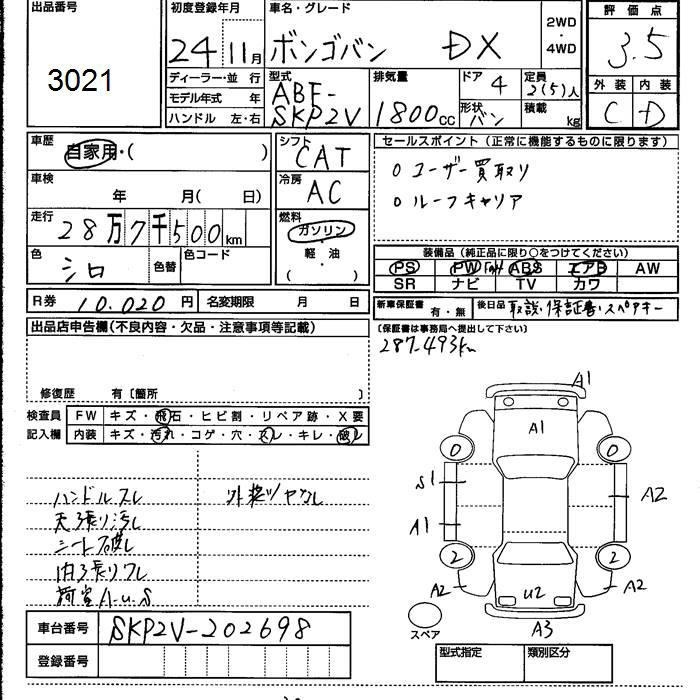 出品番号
3021
初度登録年月
24年11月
車名・グレード
ボンゴバン DX
2WD・4WD
評価点
3.5
ディーラー・並 行
モデル年式 年
ハンドル 左・右
型式
ABF-SKP2V
排気量
1800cc
ドア
4
形状
バン
定員
2(5)人
積載
kg
外装 内装
C D
車歴
自家用・( )
車検
年 月( 日)
走行
28万7千500km
色
シロ
色替
色コード
シフト
CAT
冷房
AC
燃料
ガソリン・軽油
( )
セールスポイント(正常に機能するものに限ります)
○ ユーザー買取り
○ ルーフキャリア
装備品(純正品に限り○をつけてください)
PS PW ABS エアB AW
SR ナビ TV カワ
R券 10,020円
名変期限 月 日
新車保証書
有・無
後日品
取説・保証書・スペアキー
出品店申告欄(不良内容・欠品・注意事項等記載)
(保証書は事務局へ提出して下さい)
287,493km
修復歴 有〔箇所 〕
検査員記入欄
FW キズ・飛石・ヒビ割・リペア跡・X要
内装 キズ・汚れ・コゲ・穴・スレ・キレ・破レ
ハンドルスレ
天張り汚レ
シート破レ
内張りワレ
荷室A・U・S
外装ツヤナシ
A1
A1
0 0
S1
A2
A1
2 2
A2 U2 A2
A3
スペア
車台番号
SKP2V-202698
登録番号
型式指定 類別区分